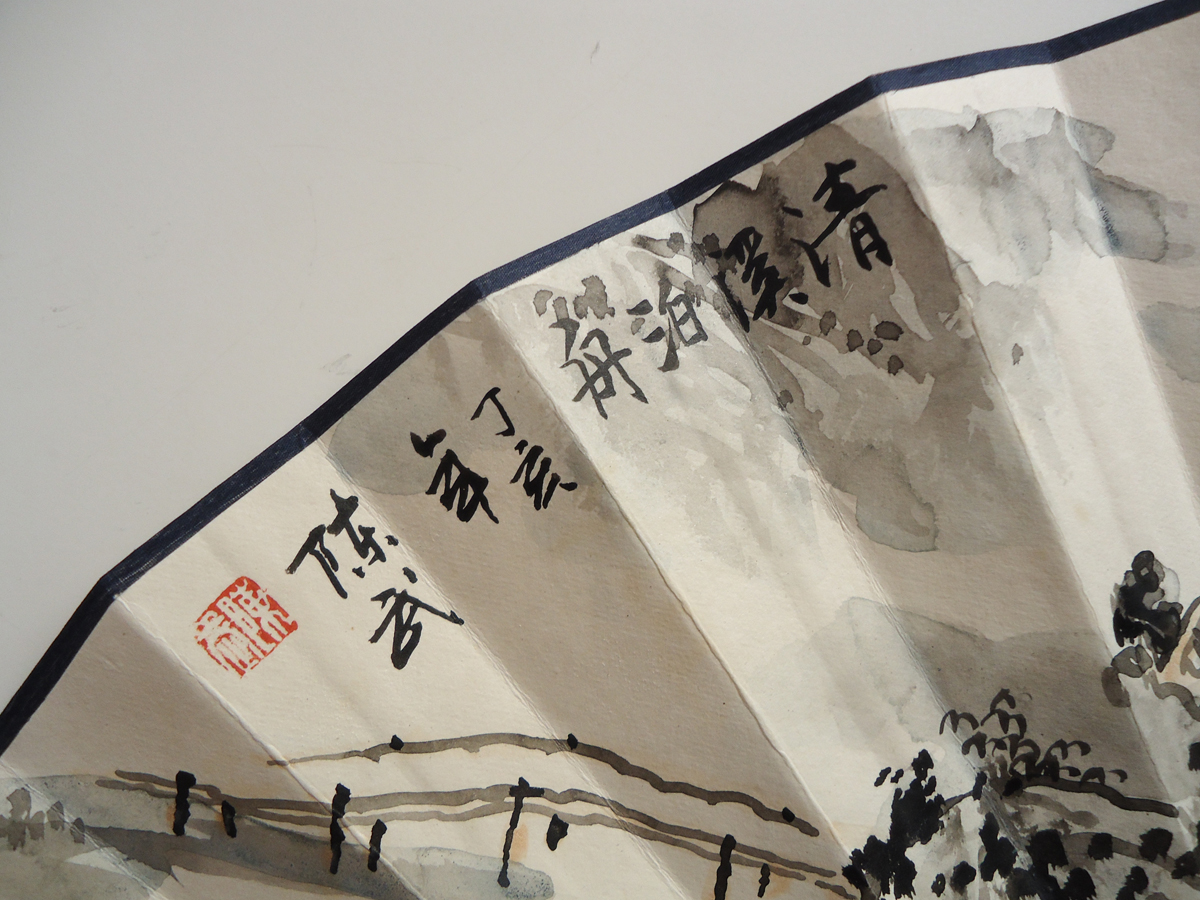 清溪泊舟
丁亥
年
陈武